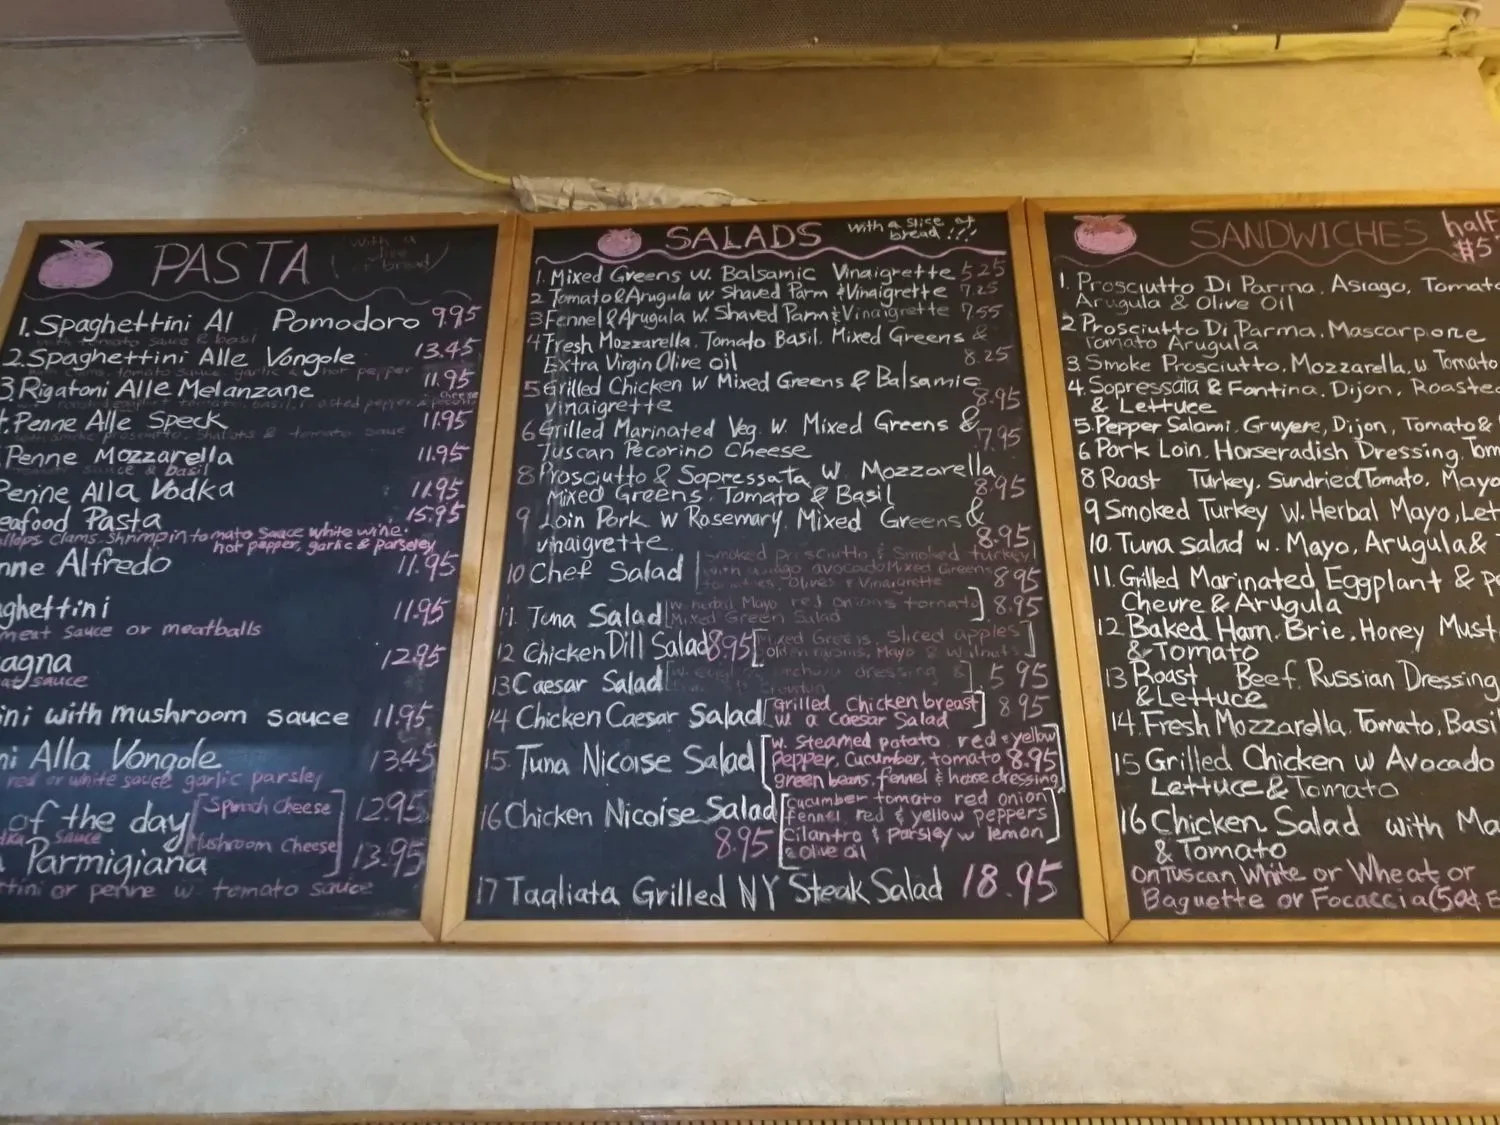 PASTA
with a
slice
of bread
1. Spaghettini Al Pomodoro 9.95
with tomato sauce & basil
2. Spaghettini Alle Vongole 13.45
with clams, tomato sauce, garlic & hot pepper
3. Rigatoni Alle Melanzane 11.95
Penne Alle Speck 11.95
with smoke prosciutto, shallots & tomato sauce
Penne Mozzarella 11.95
sauce & basil
Penne Alla Vodka 11.95
eafood Pasta 15.95
allops clams. Shrimp in tomato Sauce white wine.
hot pepper, garlic & parseley
nne Alfredo 11.95
aghettini 11.95
meat sauce or meatballs
agna 12.95
at sauce
ini with mushroom sauce 11.95
ni Alla Vongole 13.45
red or white sauce garlic parsley
of the day [Spinach Cheese 12.95
dka Sauce Mushroom Cheese]
Parmigiana 13.95
ttini or penne w. tomato sauce
SALADS with a slice of
bread !!!
1. Mixed Greens w. Balsamic Vinaigrette 5.25
2 Tomato & Arugula w Shaved Parm & Vinaigrette 7.25
3 Fennel & Arugula w. Shaved Parm & Vinaigrette 7.55
4 Fresh Mozzarella. Tomato. Basil. Mixed Greens &
Extra Virgin Olive oil 8.25
5 Grilled Chicken w Mixed Greens & Balsamic
vinaigrette 8.95
6 Grilled Marinated Veg. w. Mixed Greens &
Tuscan Pecorino Cheese 7.95
8 Prosciutto & Sopressata w. Mozzarella
Mixed Greens. Tomato & Basil 8.95
9 Loin Pork w Rosemary. Mixed Greens &
vinaigrette. 8.95
10 Chef Salad [Smoked prosciutto & Smoked turkey
avocado Mixed Greens
tomatoes, olives & Vinaigrette 8.95
11. Tuna Salad [w. herbal Mayo red onions tomato] 8.95
Mixed Green Salad
12 Chicken Dill Salad 8.95 [Mixed Greens, Sliced apples
golden raisins, Mayo & walnuts]
13 Caesar Salad [w. dressing & 5.95
14 Chicken Caesar Salad [grilled Chicken breast
w. a caesar Salad] 8.95
15. Tuna Nicoise Salad [w. steamed potato. red & yellow
pepper, Cucumber, tomato 8.95
green beans, fennel & house dressing]
16 Chicken Nicoise Salad [cucumber tomato red onion
fennel, red & yellow peppers
8.95 Cilantro & parsley w lemon
& olive oil]
17 Tagliata Grilled NY Steak Salad 18.95
SANDWICHES half
$5
1. Prosciutto Di Parma, Asiago, Tomato
Arugula & Olive Oil
2 Prosciutto Di Parma, Mascarpone
Tomato Arugula
3. Smoke Prosciutto, Mozzarella, w. Tomato
4. Sopressata & Fontina, Dijon, Roasted
& Lettuce
5. Pepper Salami. Gruyere, Dijon, Tomato &
6 Pork Loin. Horseradish Dressing. Tom
8 Roast Turkey, Sundried Tomato, Mayo
9 Smoked Turkey w. Herbal Mayo, Let
10. Tuna salad w. Mayo, Arugula &
11. Grilled Marinated Eggplant & pe
Chevre & Arugula
12 Baked Ham. Brie. Honey Must
& Tomato
13 Roast Beef. Russian Dressing
& Lettuce
14. Fresh Mozzarella, Tomato, Basil
15 Grilled Chicken w Avocado
Lettuce & Tomato
16 Chicken Salad with Ma
& Tomato
on Tuscan White or Wheat or
Baguette or Focaccia (50¢ E